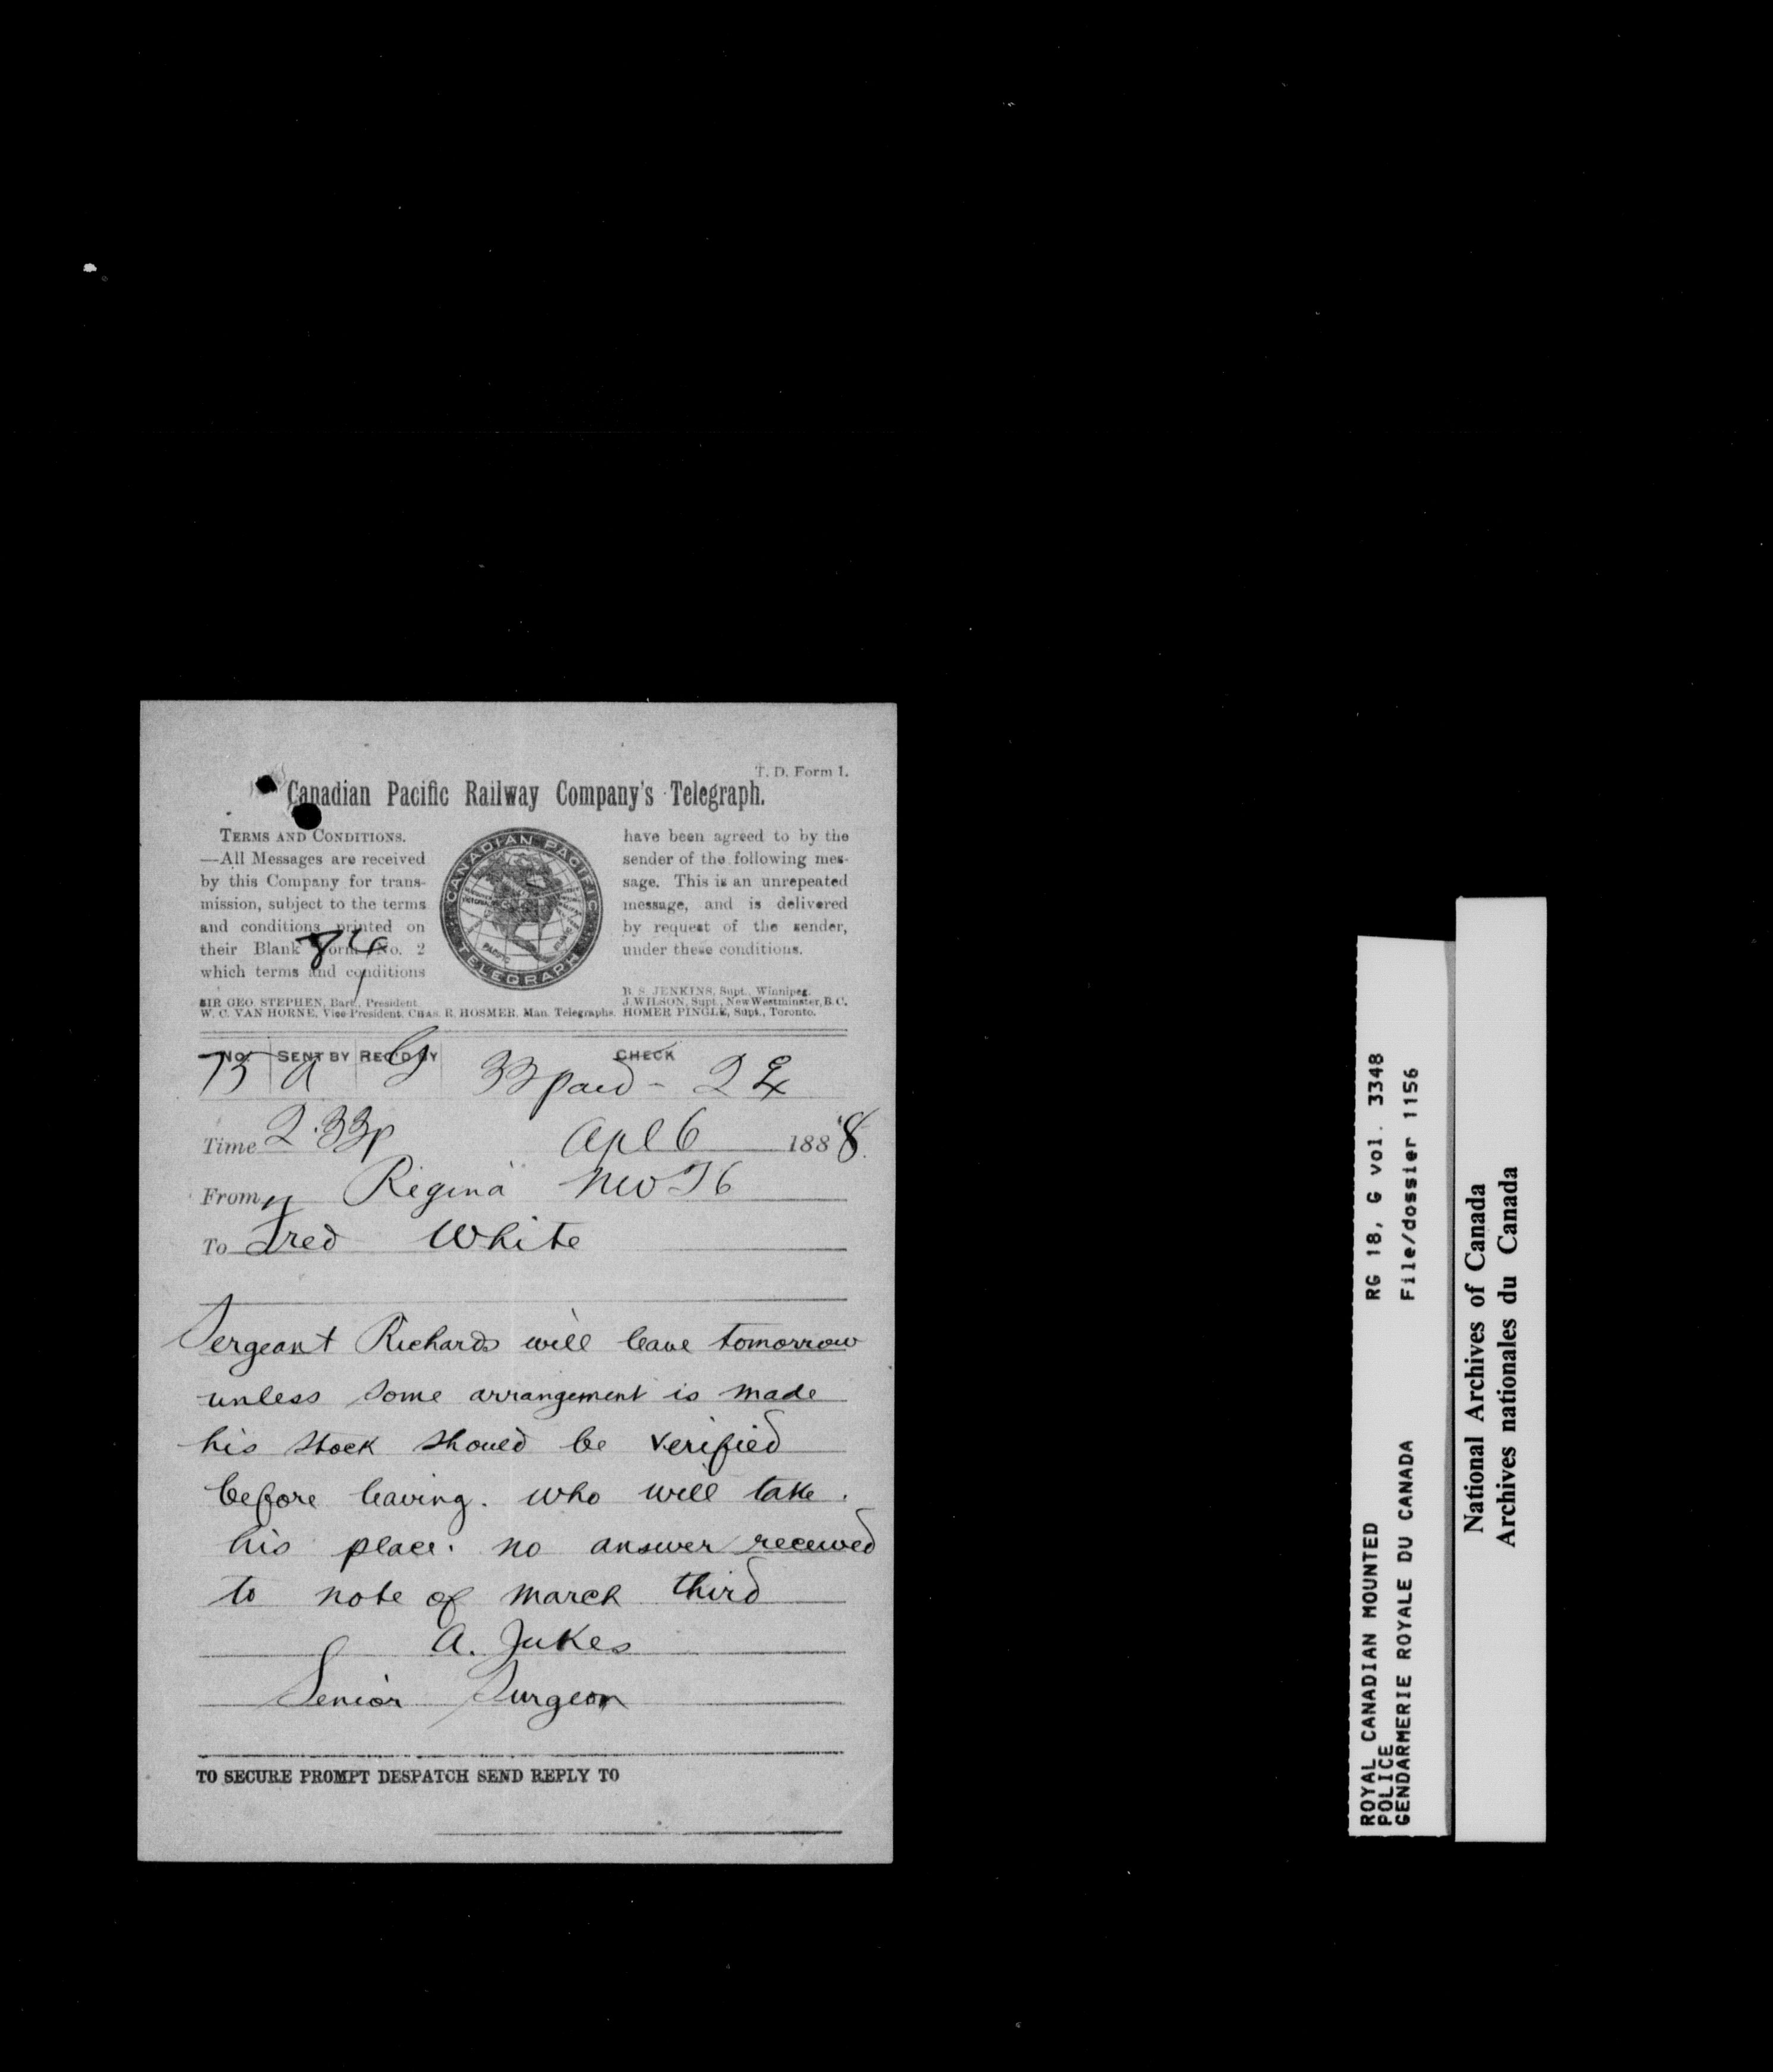 T. D. Form 1.
Canadian Pacific Railway Company's Telegraph.
TERMS AND CONDITIONS.
—All Messages are received
by this Company for trans-
mission, subject to the terms
and conditions printed on
their Blank Form No. 2
which terms and conditions
84
CANADIAN PACIFIC
TELEGRAPH
have been agreed to by the
sender of the following mes-
sage. This is an unrepeated
message, and is delivered
by request of the sender,
under these conditions.
SIR GEO. STEPHEN, Bart., President.
W. C. VAN HORNE, Vice President. CHAS. R. HOSMER, Man. Telegraphs.
B. S. JENKINS, Supt., Winnipeg.
J. WILSON, Supt., New Westminster, B.C.
HOMER PINGLE, Supt., Toronto.
NO. SENT BY REC'D BY CHECK
75 a 33 paid - 2
Time 2.33p Apl 6 1888.
From Regina NWT 6
To Fred White
Sergeant Richards will leave tomorrow
unless some arrangement is made
his stock should be verified
before leaving. who will take.
his place. no answer received
to note of march third
A. Jukes
Senior Surgeon
TO SECURE PROMPT DESPATCH SEND REPLY TO
ROYAL CANADIAN MOUNTED RG 18, G vol. 3348
POLICE
GENDARMERIE ROYALE DU CANADA File/dossier 1156
National Archives of Canada
Archives nationales du Canada